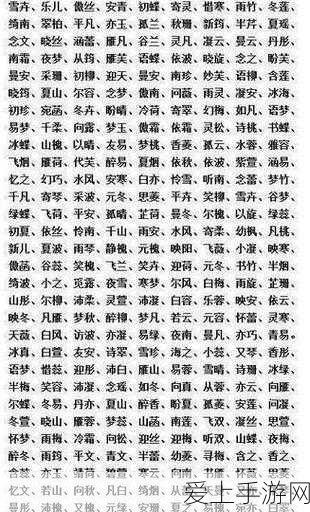 雪卉、乐儿、傲丝、安青、初蝶、寄灵、惜寒、雨竹、冬莲、
绮南、翠柏、平凡、亦玉、孤兰、秋珊、新筠、半芹、夏瑶、
念文、晓丝、涵蕾、雁凡、谷兰、灵凡、凝云、曼云、丹彤、
南霜、夜梦、从筠、雁芙、语蝶、依波、晓旋、念之、盼芙、
曼安、采珊、初柳、迎天、曼安、南珍、妙芙、语柳、含莲、
晓筠、夏山、尔容、念梦、傲南、问薇、雨灵、凝安、冰海、
初珍、宛菡、冬卉、盼晴、冷荷、寄翠、幻梅、如凡、语梦、
易梦、千柔、向露、梦玉、傲霜、依霜、灵松、诗桃、书蝶、
冰蝶、山槐、以晴、友易、梦桃、香菱、孤云、水蓉、雅容、
飞烟、雁荷、代芙、醉易、夏烟、依秋、依波、紫萱、涵易、
忆之、幻巧、水风、安寒、白亦、怜雪、听南、念蕾、梦竹、
千凡、寄琴、采波、元冬、思菱、平卉、笑柳、雪卉、谷梦、
绿蝶、飞荷、平安、孤晴、芷荷、曼冬、尔槐、以旋、绿蕊、
初夏、依丝、怜南、千山、雨安、水风、寄柔、幼枫、凡桃、
新儿、夏波、雨琴、静槐、元槐、映阳、飞薇、小凝、映寒、
傲菡、谷蕊、笑槐、飞兰、笑卉、迎荷、元冬、书竹、半烟、
绮波、小之、觅露、夜雪、寒梦、尔风、白梅、雨旋、芷珊、
山彤、尔柳、沛柔、灵萱、沛凝、白容、乐蓉、映安、依云、
映冬、凡雁、梦秋、醉柳、梦凡、若云、元容、怀蕾、灵寒、
天薇、白风、访波、亦凝、易绿、夜南、曼凡、亦巧、青易。
冰真、白萱、友安、诗翠、雪珍、海之、小蕊、又琴、香彤、
语梦、惜蕊、迎彤、沛白、雁山、易蓉、雪晴、诗珊、冰绿、
半梅、笑容、沛凝、念瑶、如冬、向真、从蓉、亦云、向雁、
尔蝶、冬易、丹亦、夏山、醉香、盼夏、孤菱、安莲、问凝、
冬萱、晓山、雁蓉、梦蕊、山菡、南莲、飞双、凝丝、思萱、
怀梦、雨梅、冷霜、向松、迎丝、迎梅、听双、山蝶、夜梅、
醉冬、雨筠、平文、青文、半蕾、幼菱、寻梅、含之、香之、
含蕊、亦玉、靖荷、碧萱、寒云、向南、书雁、怀薇、思菱、
忆文、若山、向秋、凡白、绮烟、从
爱上手游网